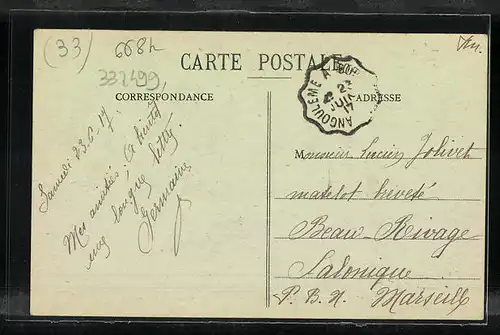 (33)
668h
332499,
CARTE POSTALE
CORRESPONDANCE
ADRESSE
ANGOULEME A BOR
23
JUIN
17
Samedi 23.6.17.
Mes amitiés; A bientôt
une longue lettre
Germaine
Monsieur Lucien Jolivet
matelot breveté
Beau Rivage
Salonique
P. B. N. Marseille